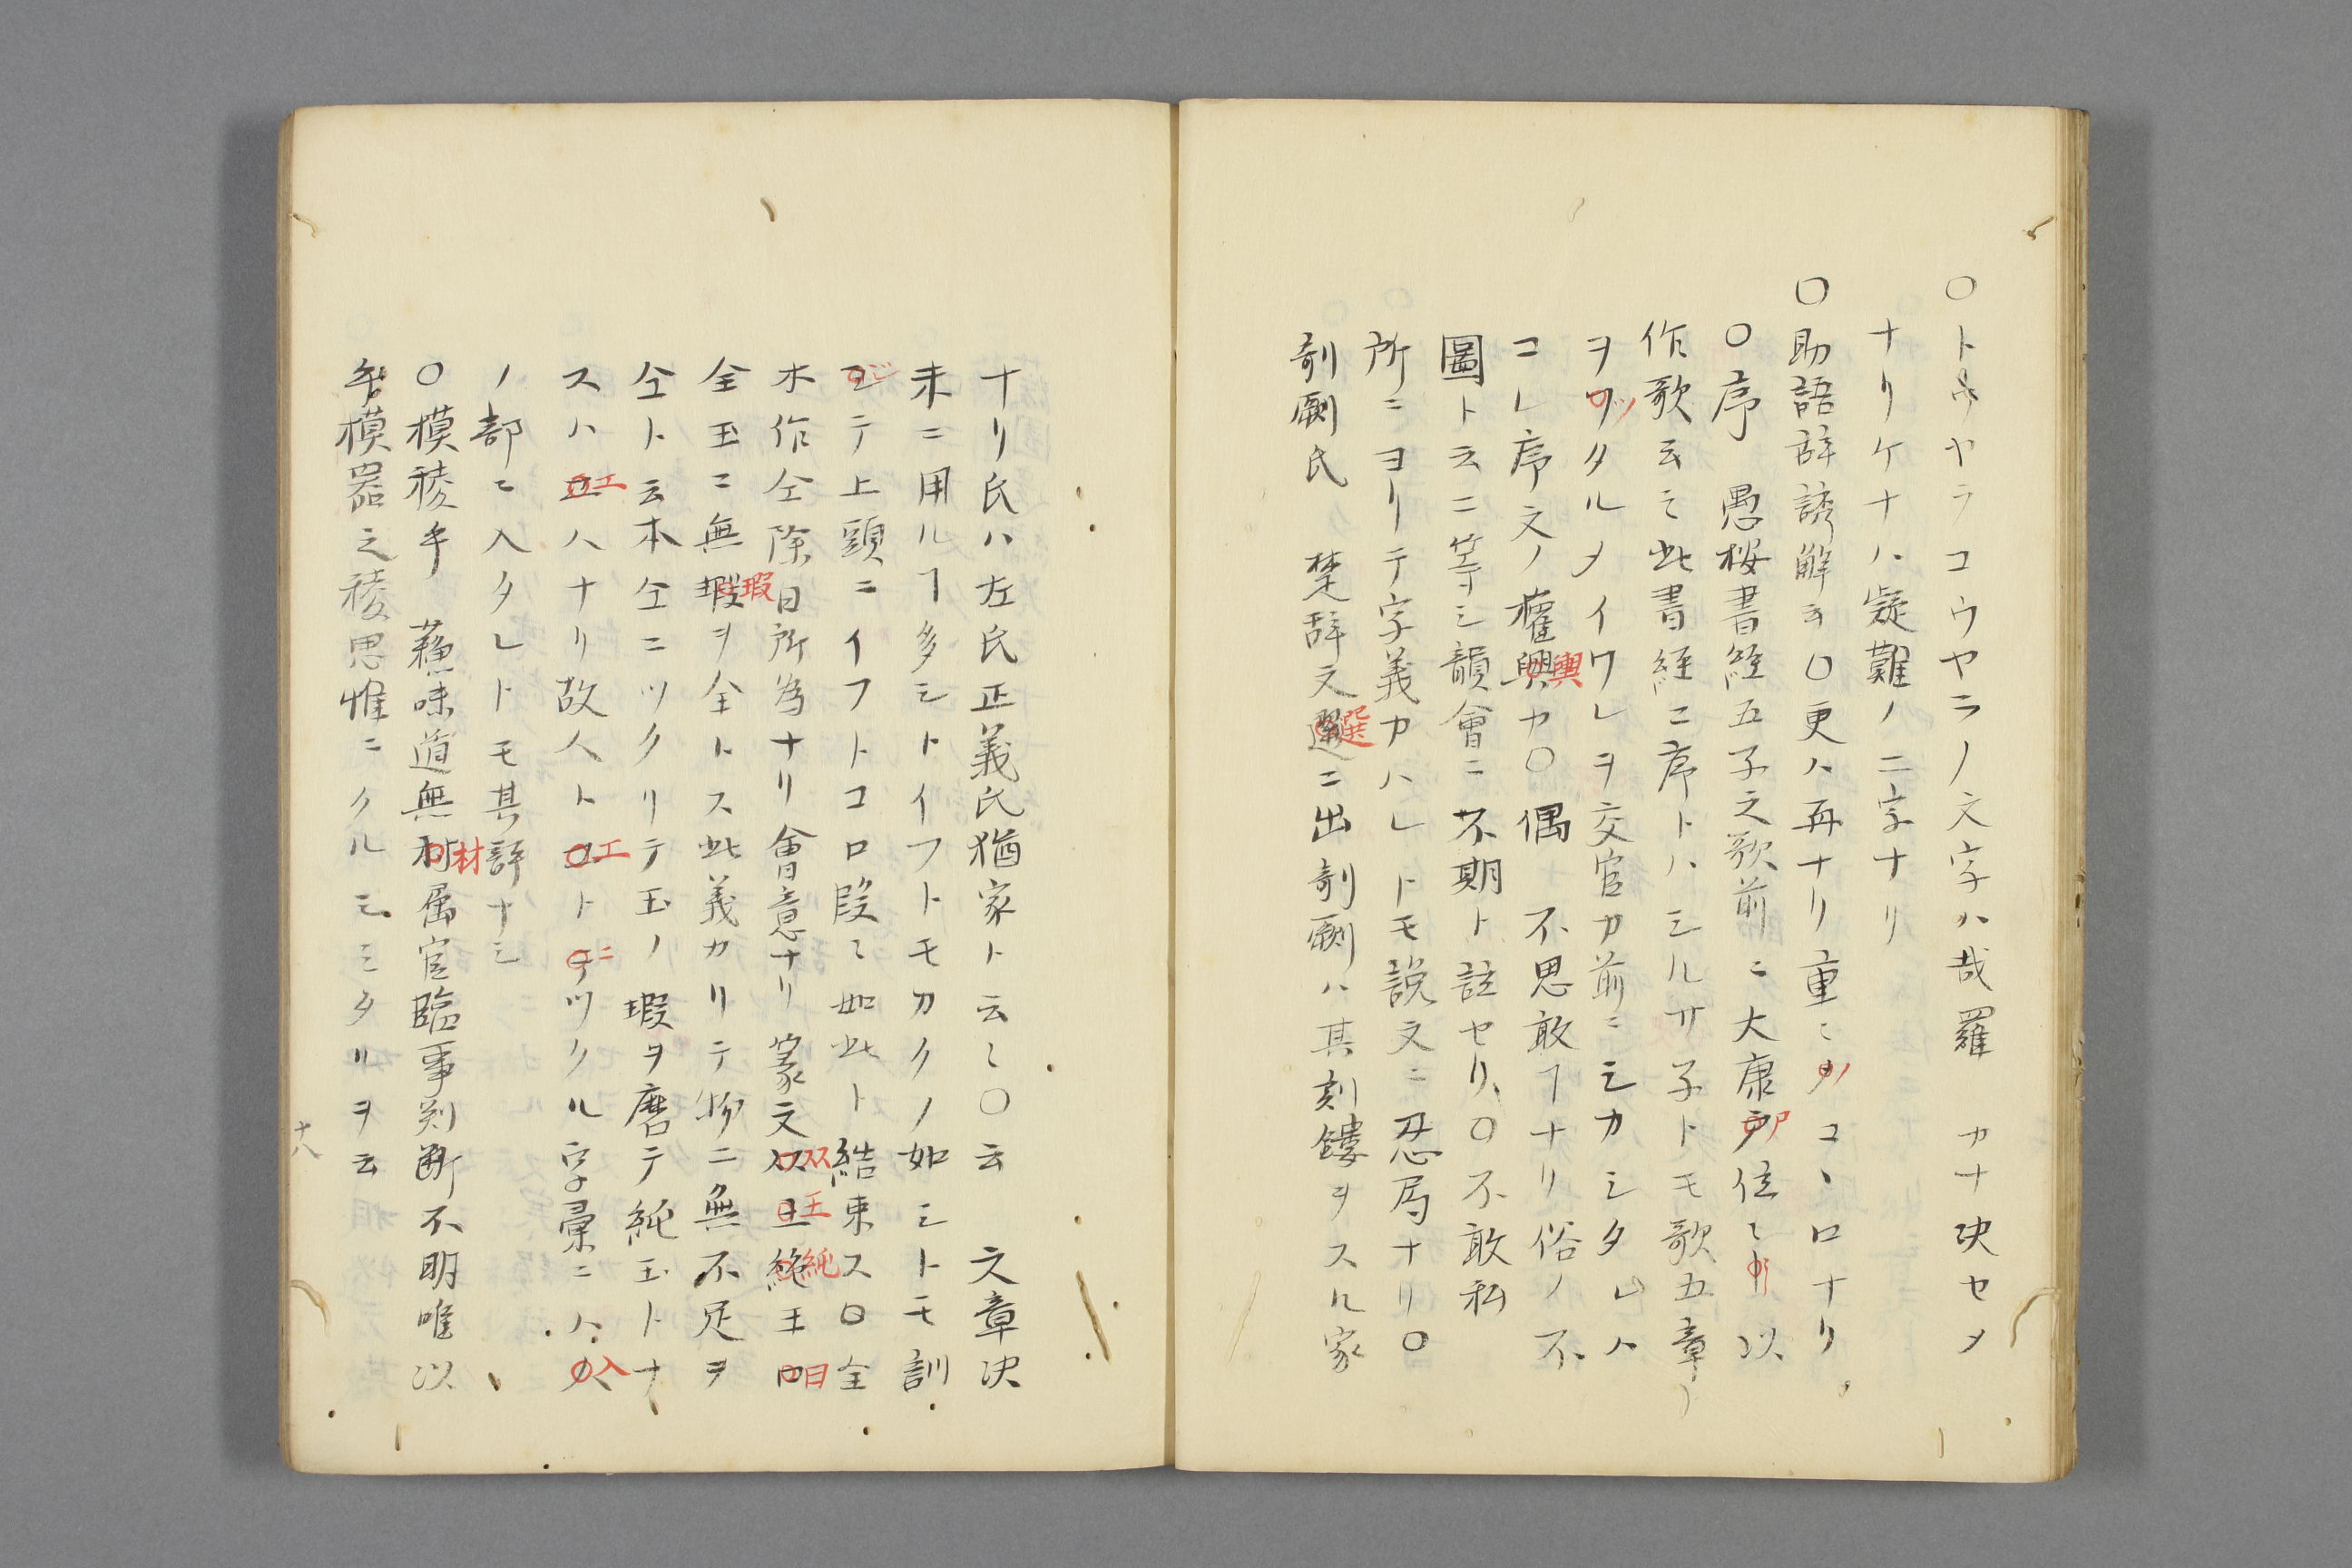 〇トウヤラコウヤラノ文字ハ哉羅　カナ决セメ
ナリケナハ疑難ノ二字ナリ
〇助語辞誘解云〇更ハ再ナリ重ミノコヽロナリ
〇序　愚桉書経五子之歌前ニ大康尸位ミ以
作歌云ミ此書経ニ序トハシルサ子トモ歌五章
ヲツタルメイワレヲ交官カ前ニシカシタレハ
コレ序文ノ權輿カ〇偶　不思敢ヿナリ俗ノ不
圖ト云ニ等シ韻會ニ不期ト註セリ〇不敢私
所ニヨリテ字義カハレトモ説文ニ忍局ナリ〇
剞劂氏　楚辞文選ニ出剞劂ハ其刻鏤ヲスル家
ナリ氏ハ左氏正義氏猶家ト云ミ〇云　文章决
未ニ用ルヿ多シトイフトモカクノ如シトモ訓
シテ上頭ニイフトコロ段ミ如此ト結束ス〇全
木作仝除曰所為ナリ會意ナリ篆文从王純玉曰
全玉ニ無瑕ヲ全トス此義カリテ物ニ無不足ヲ
仝ト云本仝ニツクリテ玉ノ瑕ヲ磨テ純玉トナ
スハ工ハナリ故人ト工トニツクル字彙ニハ入
ノ部ミ入タレトモ其辞ナシ
〇模稜手　蘓味道無材属官臨事判断不明唯以
手模器之稜思惟ニクルシミタリヲ云
十八